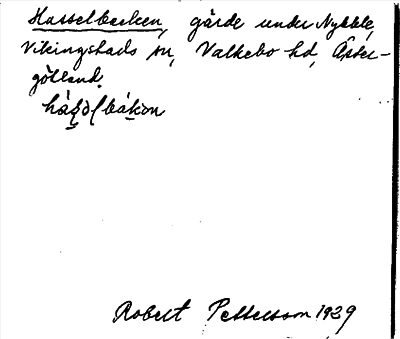 Hasselbacken, gärde under Nybble,
Vikingstads sn, Valkebo hd, Öster-
götland.
Robert Pettersson 1929